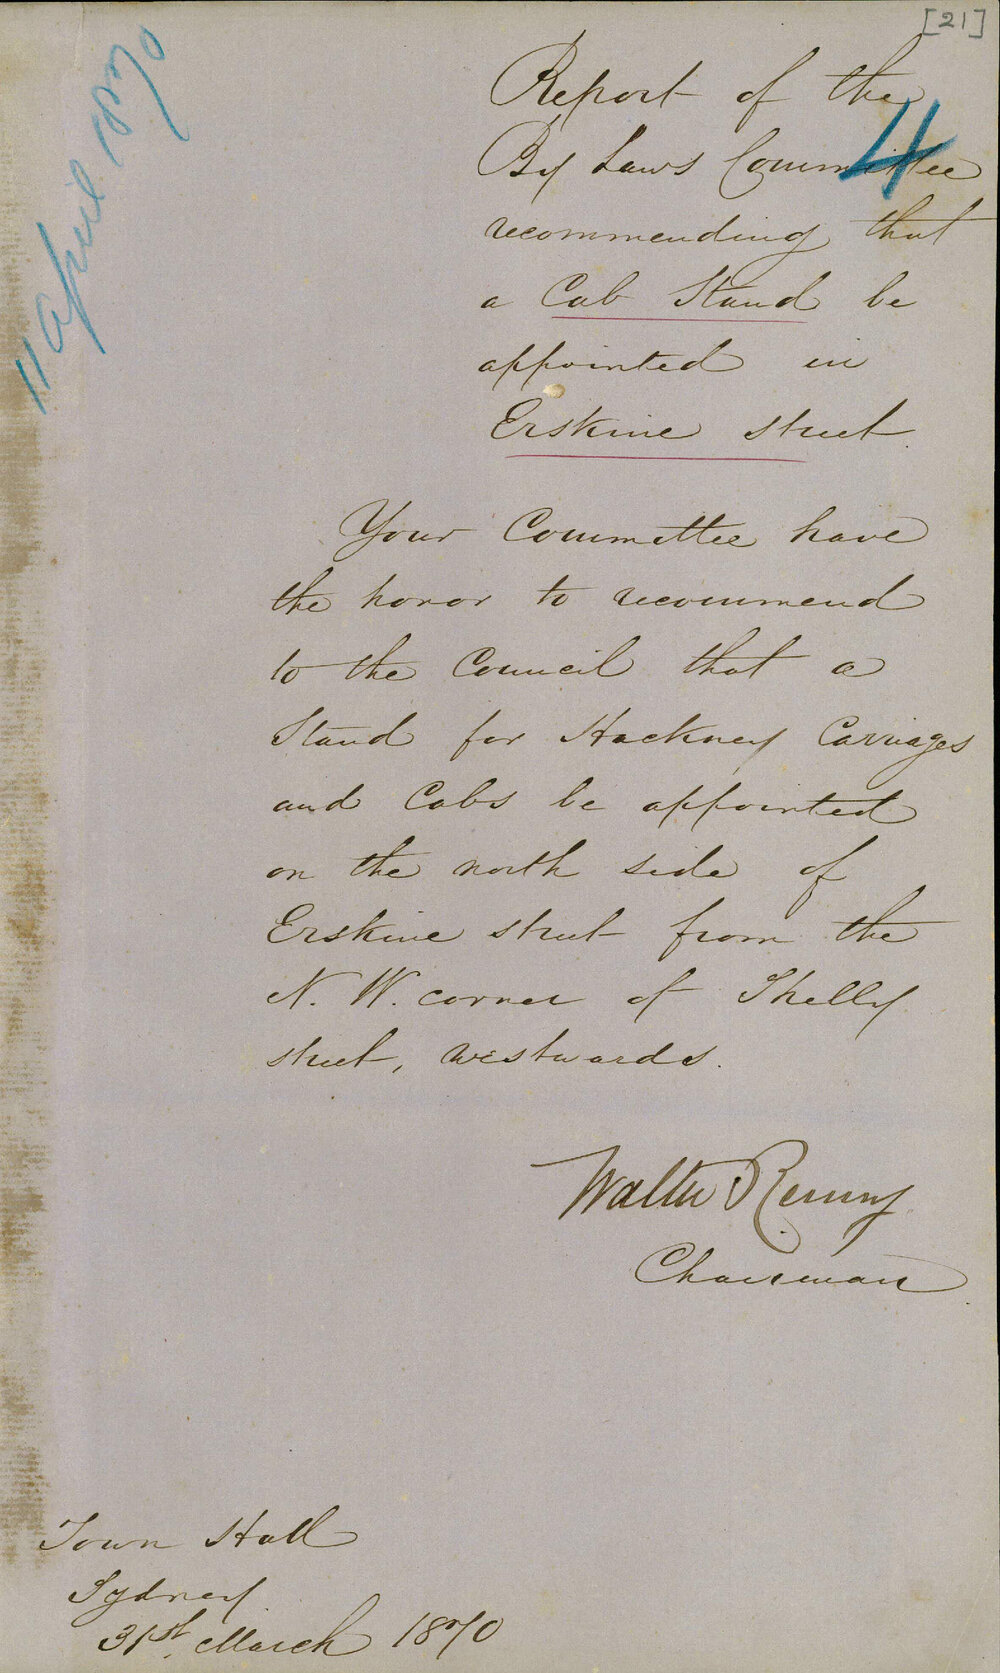 [21]
11 April 1870
4
Report of the
By Laws Committee
recommending that
a Cab Stand be
appointed in
Erskine street.
Your Committee have
the honor to recommend
to the Council that a
Stand for Hackney Carriages
and Cabs be appointed
on the north side of
Erskine street from the
N. W. corner of Shelly
street, westwards.
Walter Renny
Chairman
Town Hall
Sydney
31st. March 1870